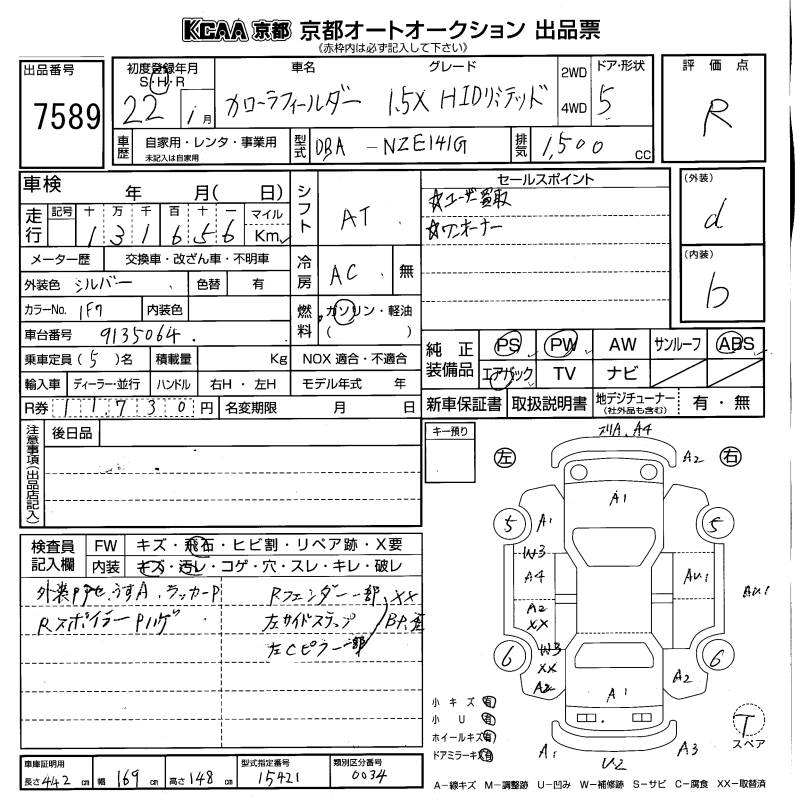 KCAA 京都 京都オートオークション 出品票
《赤枠内は必ず記入して下さい》
出品番号
7589
初度登録年月
S・H・R
22 1月
車名
カローラフィールダー
グレード
1.5X HIDリミテッド
2WD
4WD
ドア・形状
5
評価点
R
車歴
自家用・レンタ・事業用
未記入は自家用
型式
DBA-NZE141G
排気
1,500 cc
車検 年 月( 日)
走行
記号 十 万 千 百 十 一 マイル
1 3 1 6 5 6 Km
メーター歴 交換車・改ざん車・不明車
外装色 シルバー 色替 有
カラーNo. 1F7 内装色
車台番号 9135064
乗車定員(5)名 積載量 Kg NOX 適合・不適合
輸入車 ディーラー・並行 ハンドル 右H・左H モデル年式 年
R券 11,730円 名変期限 月 日
シフト AT
冷房 AC 無
燃料 ガソリン・軽油
( )
セールスポイント
☆ユーザー買取
☆ワンオーナー
(外装)
d
(内装)
b
純正装備品
PS PW AW サンルーフ ABS
エアバック TV ナビ
新車保証書 取扱説明書 地デジチューナー (社外品も含む) 有・無
注意事項(出品店記入)
後日品
キー預り
検査員記入欄
FW キズ・飛石・ヒビ割・リペア跡・X要
内装 キズ・汚レ・コゲ・穴・スレ・キレ・破レ
外装PアセウすA、ラッカーP
RスポイラーPハゲ
Rフェンダー一部、XX
左サイドステップ
左Cピラー一部
左 右
A4
A2
A1
5 5
A1
W3
A4
AU1
AU1
A2
XX
W3
XX
A2
6 6
A2
A1
A1
U2
A3
小キズ 有
小U 有
ホイールキズ 有
ドアミラーキズ 有
T
スペア
車庫証明用
長さ 442 cm 幅 169 cm 高さ 148 cm
型式指定番号
15421
類別区分番号
0034
A−線キズ M−調整跡 U−凹み W−補修跡 S−サビ C−腐食 XX−取替済